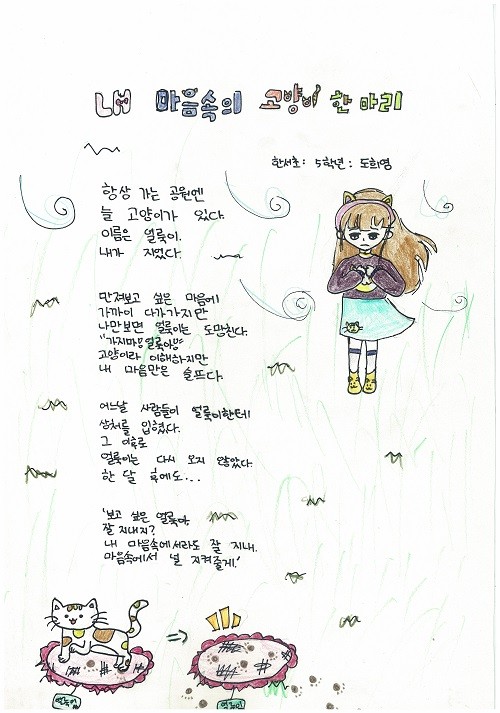 내 마음속의 고양이 한 마리
한서초 : 5학년 : 도희영
항상 가는 공원엔
늘 고양이가 있다.
이름은 얼룩이.
내가 지었다.
만져보고 싶은 마음에
가까이 다가가지만
나만보면 얼룩이는 도망친다.
"가지마! 얼룩아!"
고양이라 이해하지만
내 마음만은 슬프다.
어느날 사람들이 얼룩이한테
상처를 입혔다.
그 이후로
얼룩이는 다시 오지 않았다.
한 달 후에도...
'보고 싶은 얼룩아,
잘 지내지?
내 마음속에서라도 잘 지내.
마음속에서 널 지켜줄게.'
얼룩이